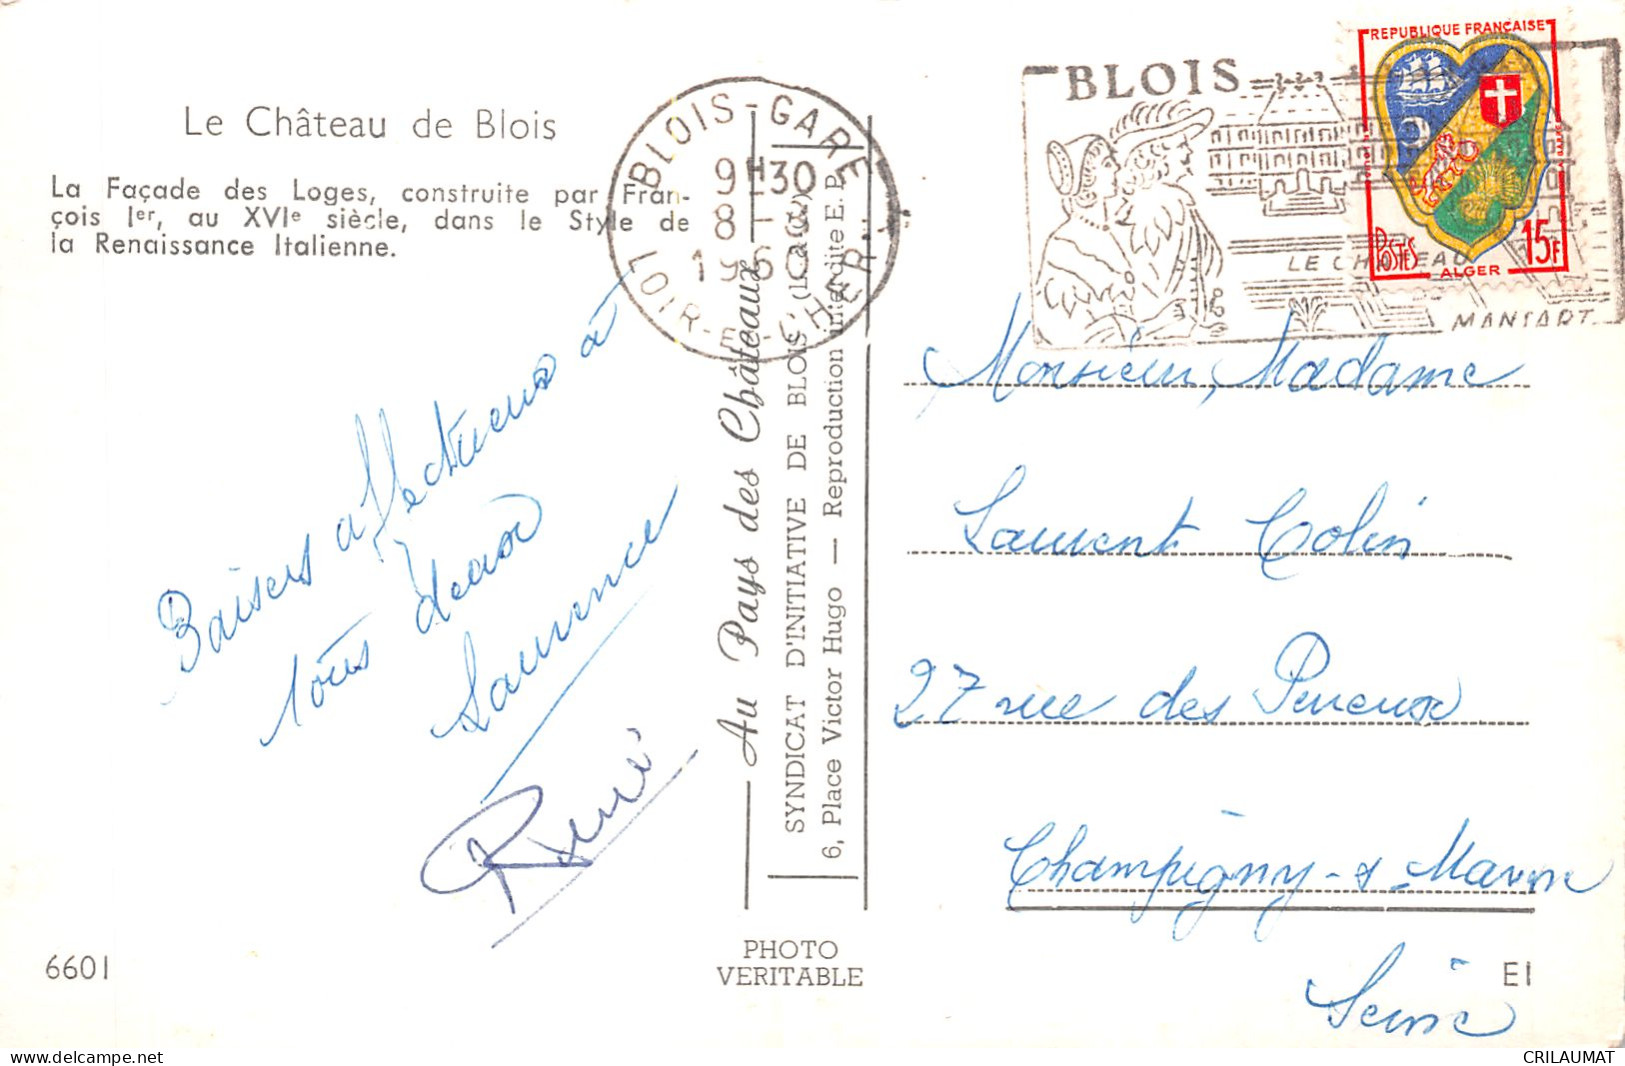 Le Château de Blois
La Façade des Loges, construite par Fran-
çois Ier, au XVIe siècle, dans le Style de
la Renaissance Italienne.
BLOIS-GARE
9H30
8-8
LOIR-ET-CHER
BLOIS
LE CHATEAU
MANSART
REPUBLIQUE FRANÇAISE
POSTES
ALGER
15F
Baisers affectueux à
tous deux
Laurence
René
Au Pays des Châteaux
SYNDICAT D'INITIATIVE DE BLOIS
6, Place Victor Hugo — Reproduction interdite E. P.
Monsieur, Madame
Laurent Colin
27 rue des Perreux
Champigny-s-Marne
Seine
6601
PHOTO
VERITABLE
E1
delcampe.net
CRILAUMAT